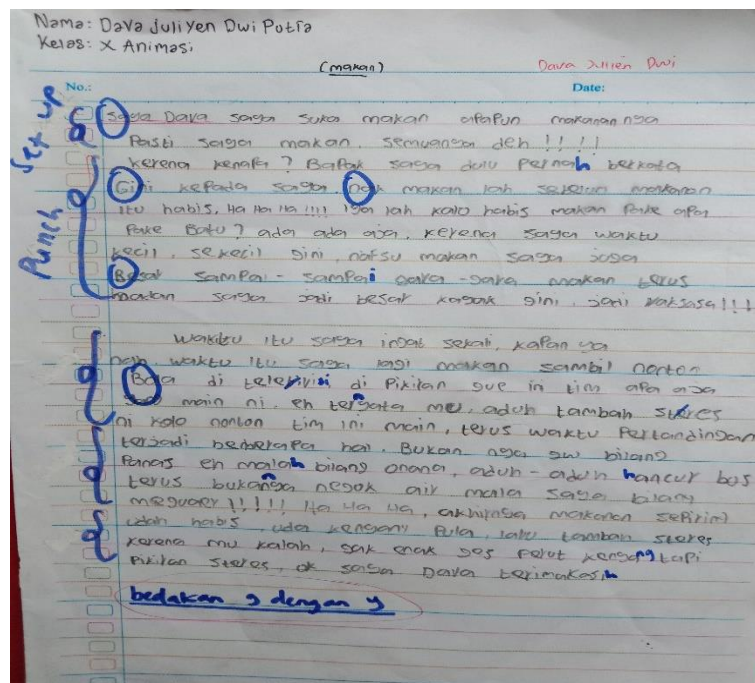 Nama: Dava Juliyen Dwi Putra
Kelas: X Animasi
(makan)
Dava Julien Dwi
No.:
Date:
Set up
Punch
Saya Dava saya suka makan apapun makanan nya
Pasti saya makan semuanya deh !!!!
kerena kenapa? Bapak saya dulu Pernah berkata
Gini kepada saya nak makan lah sebelum makanan
itu habis, Ha Ha Ha !!!! iya lah kalo habis makan Pake apa
Pake Batu? ada ada aja, kerena saya waktu
kecil, sekecil gini, nafsu makan saya juga
Besar sampai-sampai gara-gara makan terus
badan saya jadi besar kagak gini, jadi raksasa!!!
waktu itu saya ingat sekali, kapan ya
nah waktu itu saya lagi makan sambil nonton
Bola di televisi di Pikiran gue in tim apa aja
main ni, eh ternyata mu, aduh tambah stres
ni kalo nonton tim ini main, terus waktu Pertandingan
terjadi beberapa hal, Bukan nya gw bilang
Panas eh malah bilang onana, aduh-aduh hancur bos
terus bukannya negok air mala saya bilang
meguaer !!!!! Ha Ha Ha, akhirnya makanan sepiring
udah habis uda kenyang Pula, lalu tamban steres
kerena mu kalah, gak enak ges Perut kenyang tapi
Pikiran steres, ok saya Dava terimakasih
bedakan g dengan y